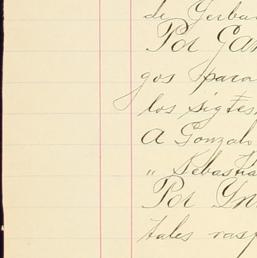 de Yerba
Por Gan
gos para
los sigtes
A Gonzalo
" Sebastia
Por In
tales ras